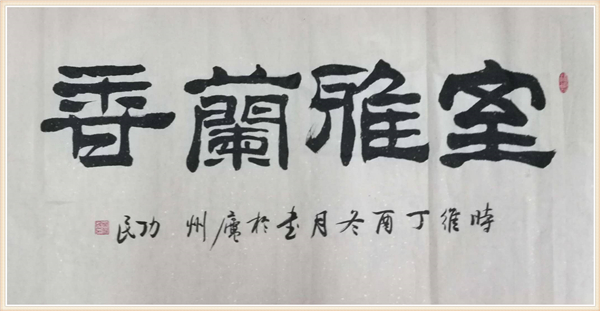 室雅蘭香
時維丁酉冬月书於廣州 功民